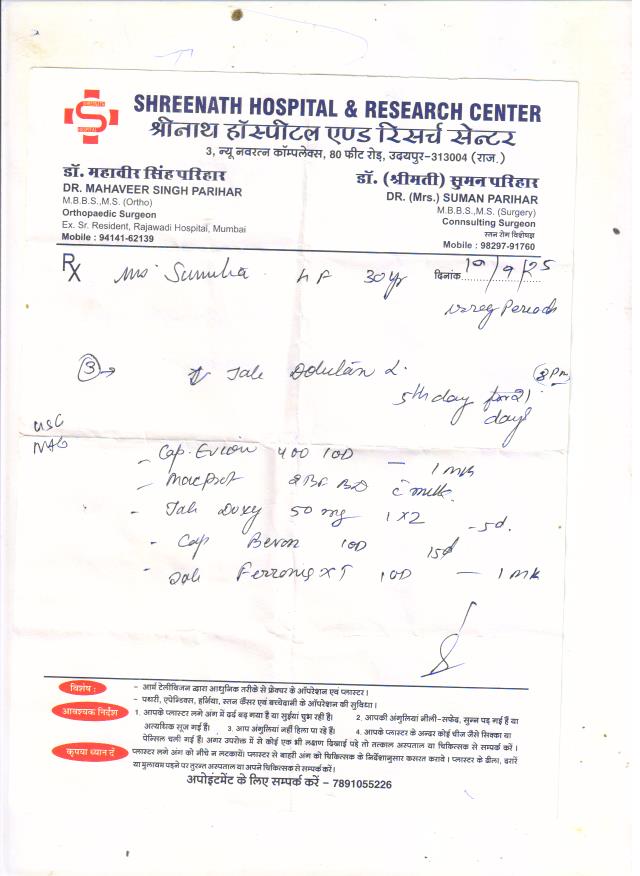 SHREENATH HOSPITAL
SHREENATH HOSPITAL & RESEARCH CENTER
श्रीनाथ हॉस्पीटल एण्ड रिसर्च सेन्टर
3, न्यू नवरत्न कॉम्पलेक्स, 80 फीट रोड़, उदयपुर-313004 (राज.)
डॉ. महावीर सिंह परिहार
DR. MAHAVEER SINGH PARIHAR
M.B.B.S.,M.S. (Ortho)
Orthopaedic Surgeon
Ex. Sr. Resident, Rajawadi Hospital, Mumbai
Mobile : 94141-62139
डॉ. (श्रीमती) सुमन परिहार
DR. (Mrs.) SUMAN PARIHAR
M.B.B.S.,M.S. (Surgery)
Connsulting Surgeon
स्तन रोग विशेषज्ञ
Mobile : 98297-91760
Rx Ms 30 yr दिनांक 19/9/25
Periods
3 → Tab 8 pm
5th day for 21
days
USG
- Cap. Evion 400 1OD - 1 mk
- BD c milk
- Tab Doxy 50 mg 1x2 - 5d.
- Cap Bevon 1OD 15d
- Tab XT 1OD - 1 mk
विशेष :
- आर्म टेलीविजन द्वारा आधुनिक तरीके से फ्रेक्चर के ऑपरेशन एवं प्लास्टर।
- पथरी, एपेन्डिक्स, हर्निया, स्तन कैंसर एवं बच्चेदानी के ऑपरेशन की सुविधा।
आवश्यक निर्देश
1. आपके प्लास्टर लगे अंग में दर्द बढ़ गया है या सुईयां चुभ रही हैं। 2. आपकी अंगुलियां नीली-सफेद, सुन्न पड़ गई हैं या
अत्यधिक सूज गई हैं। 3. आप अंगुलियाँ नहीं हिला पा रहे हैं। 4. आपके प्लास्टर के अन्दर कोई चीज जैसे सिक्का या
पेन्सिल चली गई हैं। अगर उपरोक्त में से कोई एक भी लक्षण दिखाई पड़े तो तत्काल अस्पताल या चिकित्सक से सम्पर्क करें।
कृपया ध्यान दें
प्लास्टर लगे अंग को नीचे न लटकायें। प्लास्टर से बाहरी अंग को चिकित्सक के निर्देशानुसार कसरत करावें। प्लास्टर के ढीला, दरारें
या मुलायम पड़ने पर तुरन्त अस्पताल या अपने चिकित्सक से सम्पर्क करें।
अपोइंटमेंट के लिए सम्पर्क करें - 7891055226